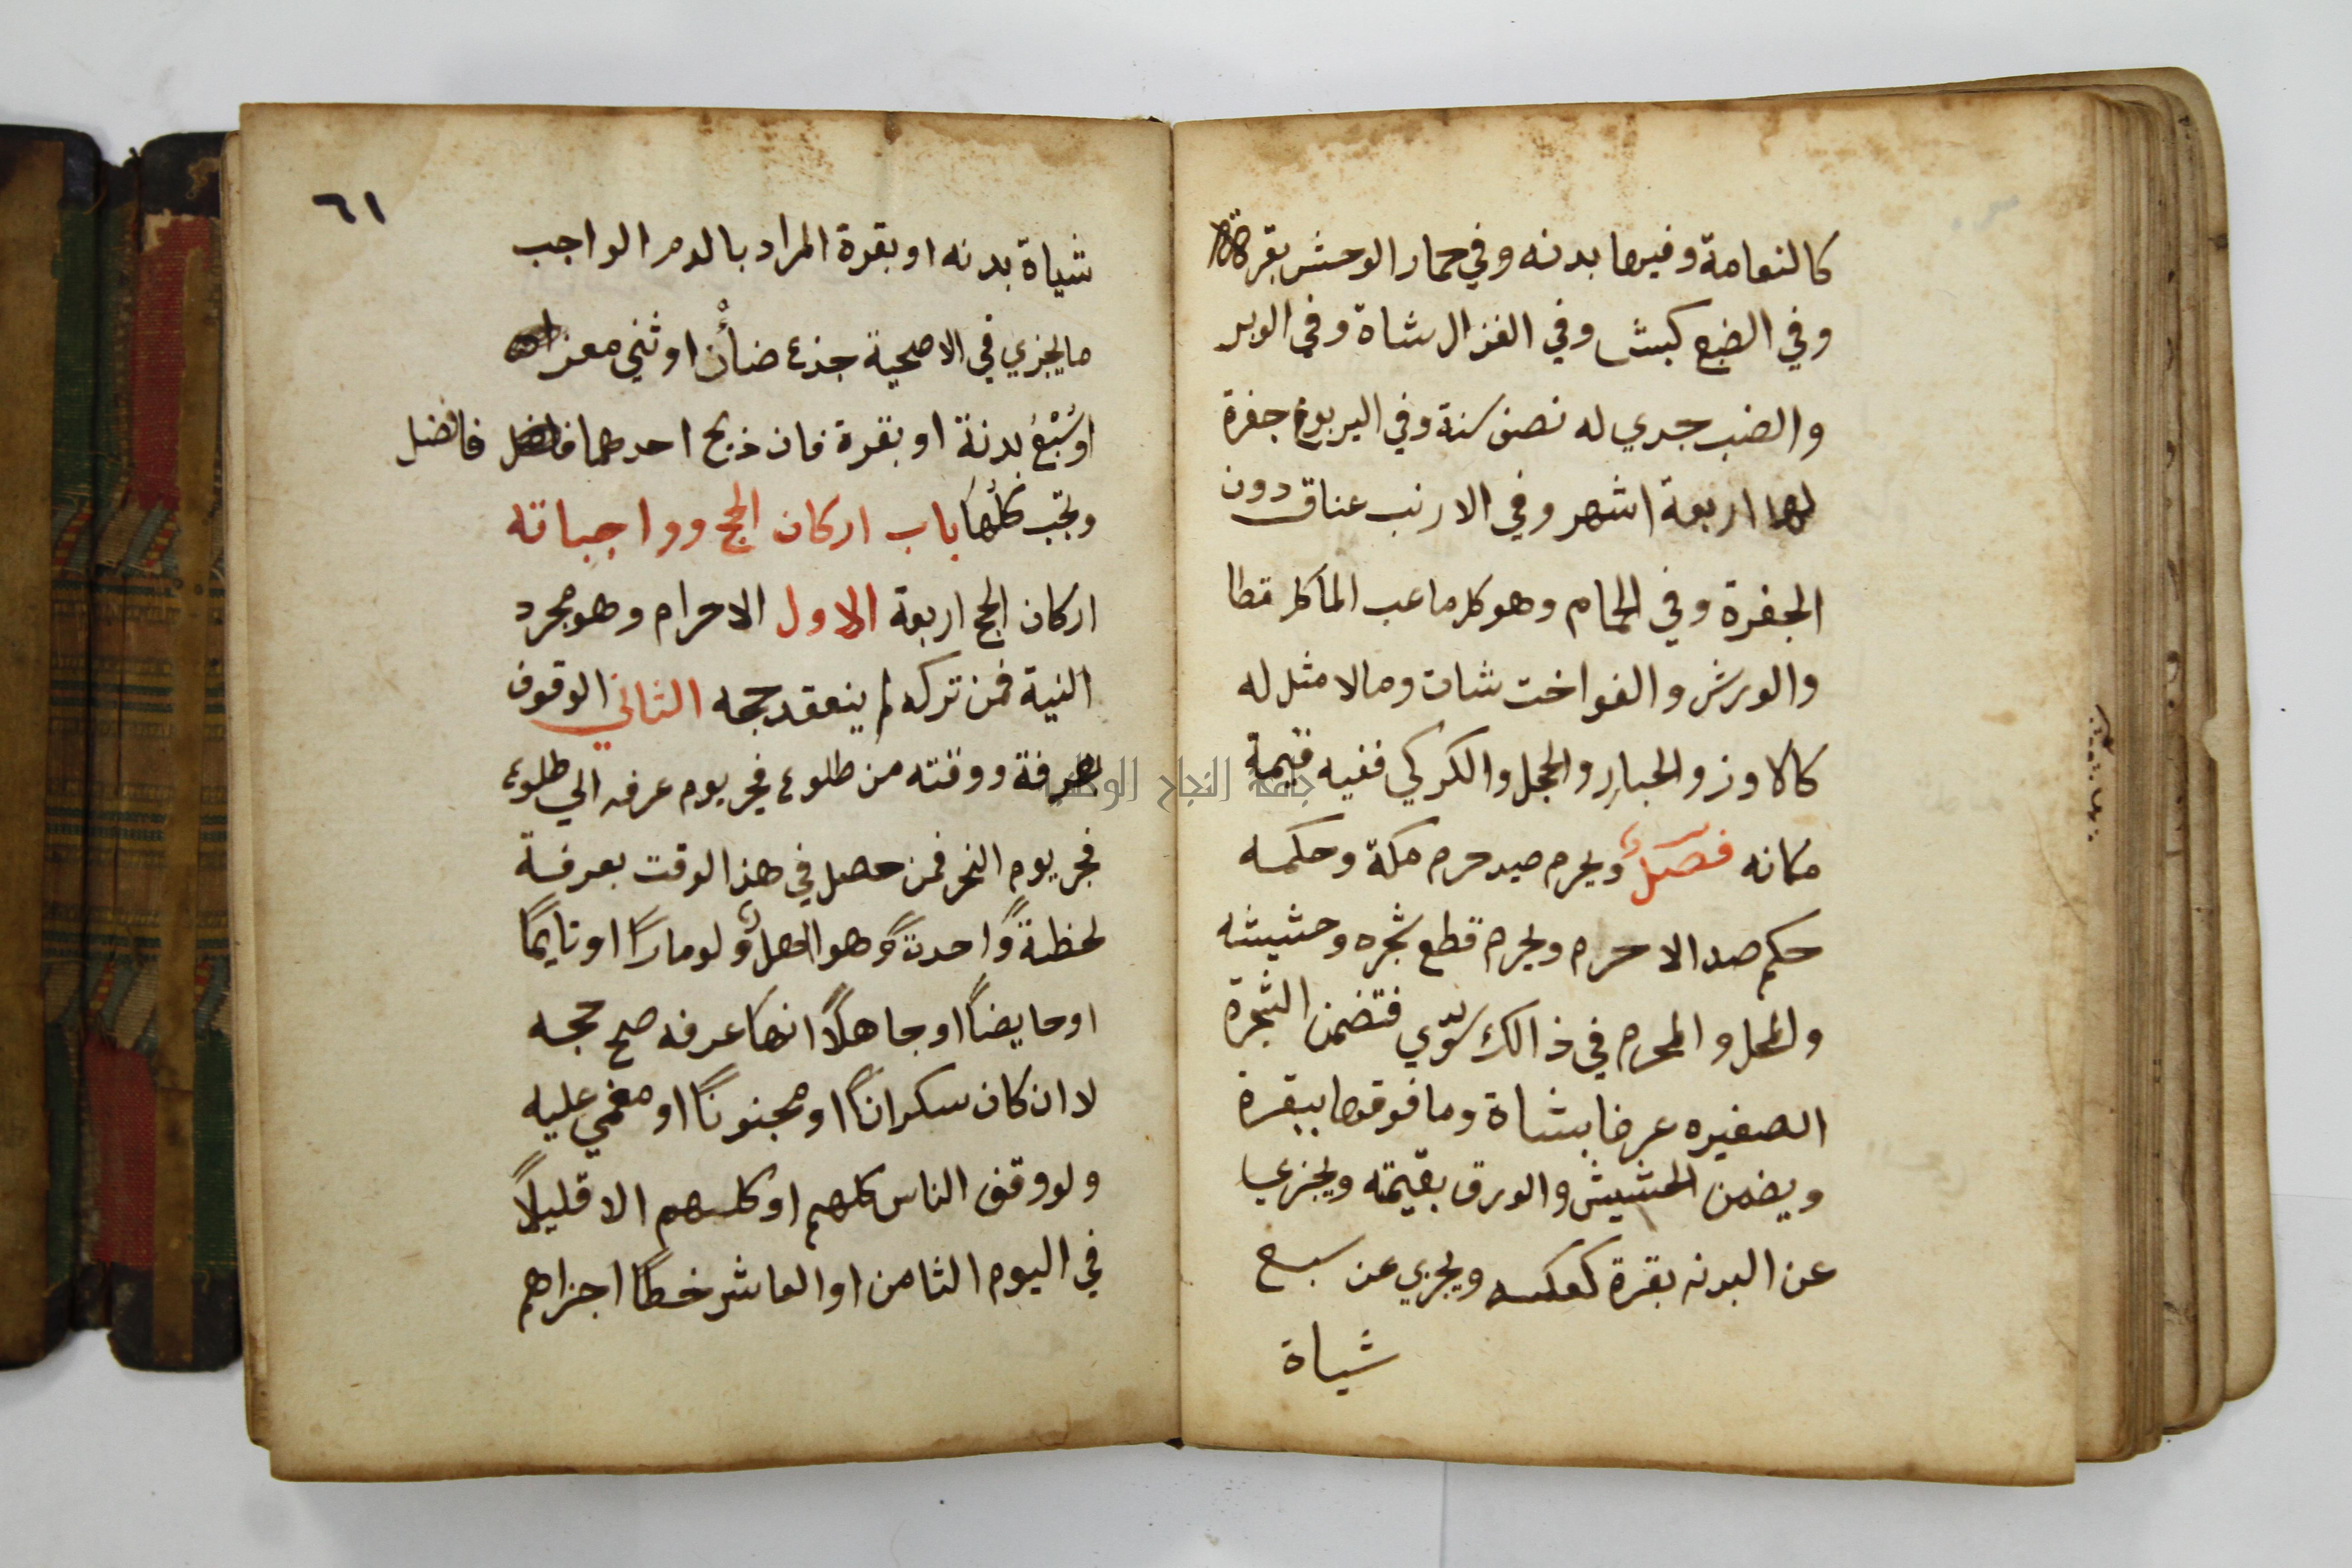 كالنعامة وفيها بدنه وفي حمار الوحش بقرة
وفي الضبع كبش وفي الغزال شاة وفي الوبر
والضب جدي له نصف سنة وفي اليربوع جفرة
لها اربعة اشهر وفي الارنب عناق دون
الجفرة وفي الحمام وهو كل ما عب الما كل قطا
والورش والفواخت شات ومالا مثل له
كالاوز والحبار والحجل والكركي ففيه قيمة
مكانه فصل ويحرم صيد حرم مكة وحكمه
حكم صد الاحرام ويحرم قطع شجره وحشيشه
والمحل والمحرم في ذالك سوي فتضمن الشجرة
الصغيره عرفا بشاة وما فوقها ببقرة
ويضمن الحشيش والورق بقيمته ويجزي
عن البدنه بقرة كعكسه ويجزي عن سبع
شياة
٦١
شياة بدنه او بقرة المراد بالدم الواجب
ما يجزي في الاضحية جذع ضأن او ثني معز
او سُبْعُ بدنة او بقرة فان ذبح احدهما فافضل
وتجب كلُها باب اركان الحج وواجباته
اركان الحج اربعة الاول الاحرام وهو مجرد
النية فمن تركه لم ينعقد حجه الثاني الوقوف
بعرفة ووقته من طلوع فجر يوم عرفه الي طلوع
فجر يوم النحر فمن حصل في هذ الوقت بعرفة
لحظةً واحدتً وهو اهلٌ ولو مارًا او نايمًا
او حايضًا او جاهلًا انها عرفه صح حجه
لا ان كان سكرانًا او مجنونًا او مغمي عليه
ولو وقف الناس كلهم او كلهم الا قليلًا
في اليوم الثامن او العاشر خطًا اجزاهم
جامعة النجاح الوطنية